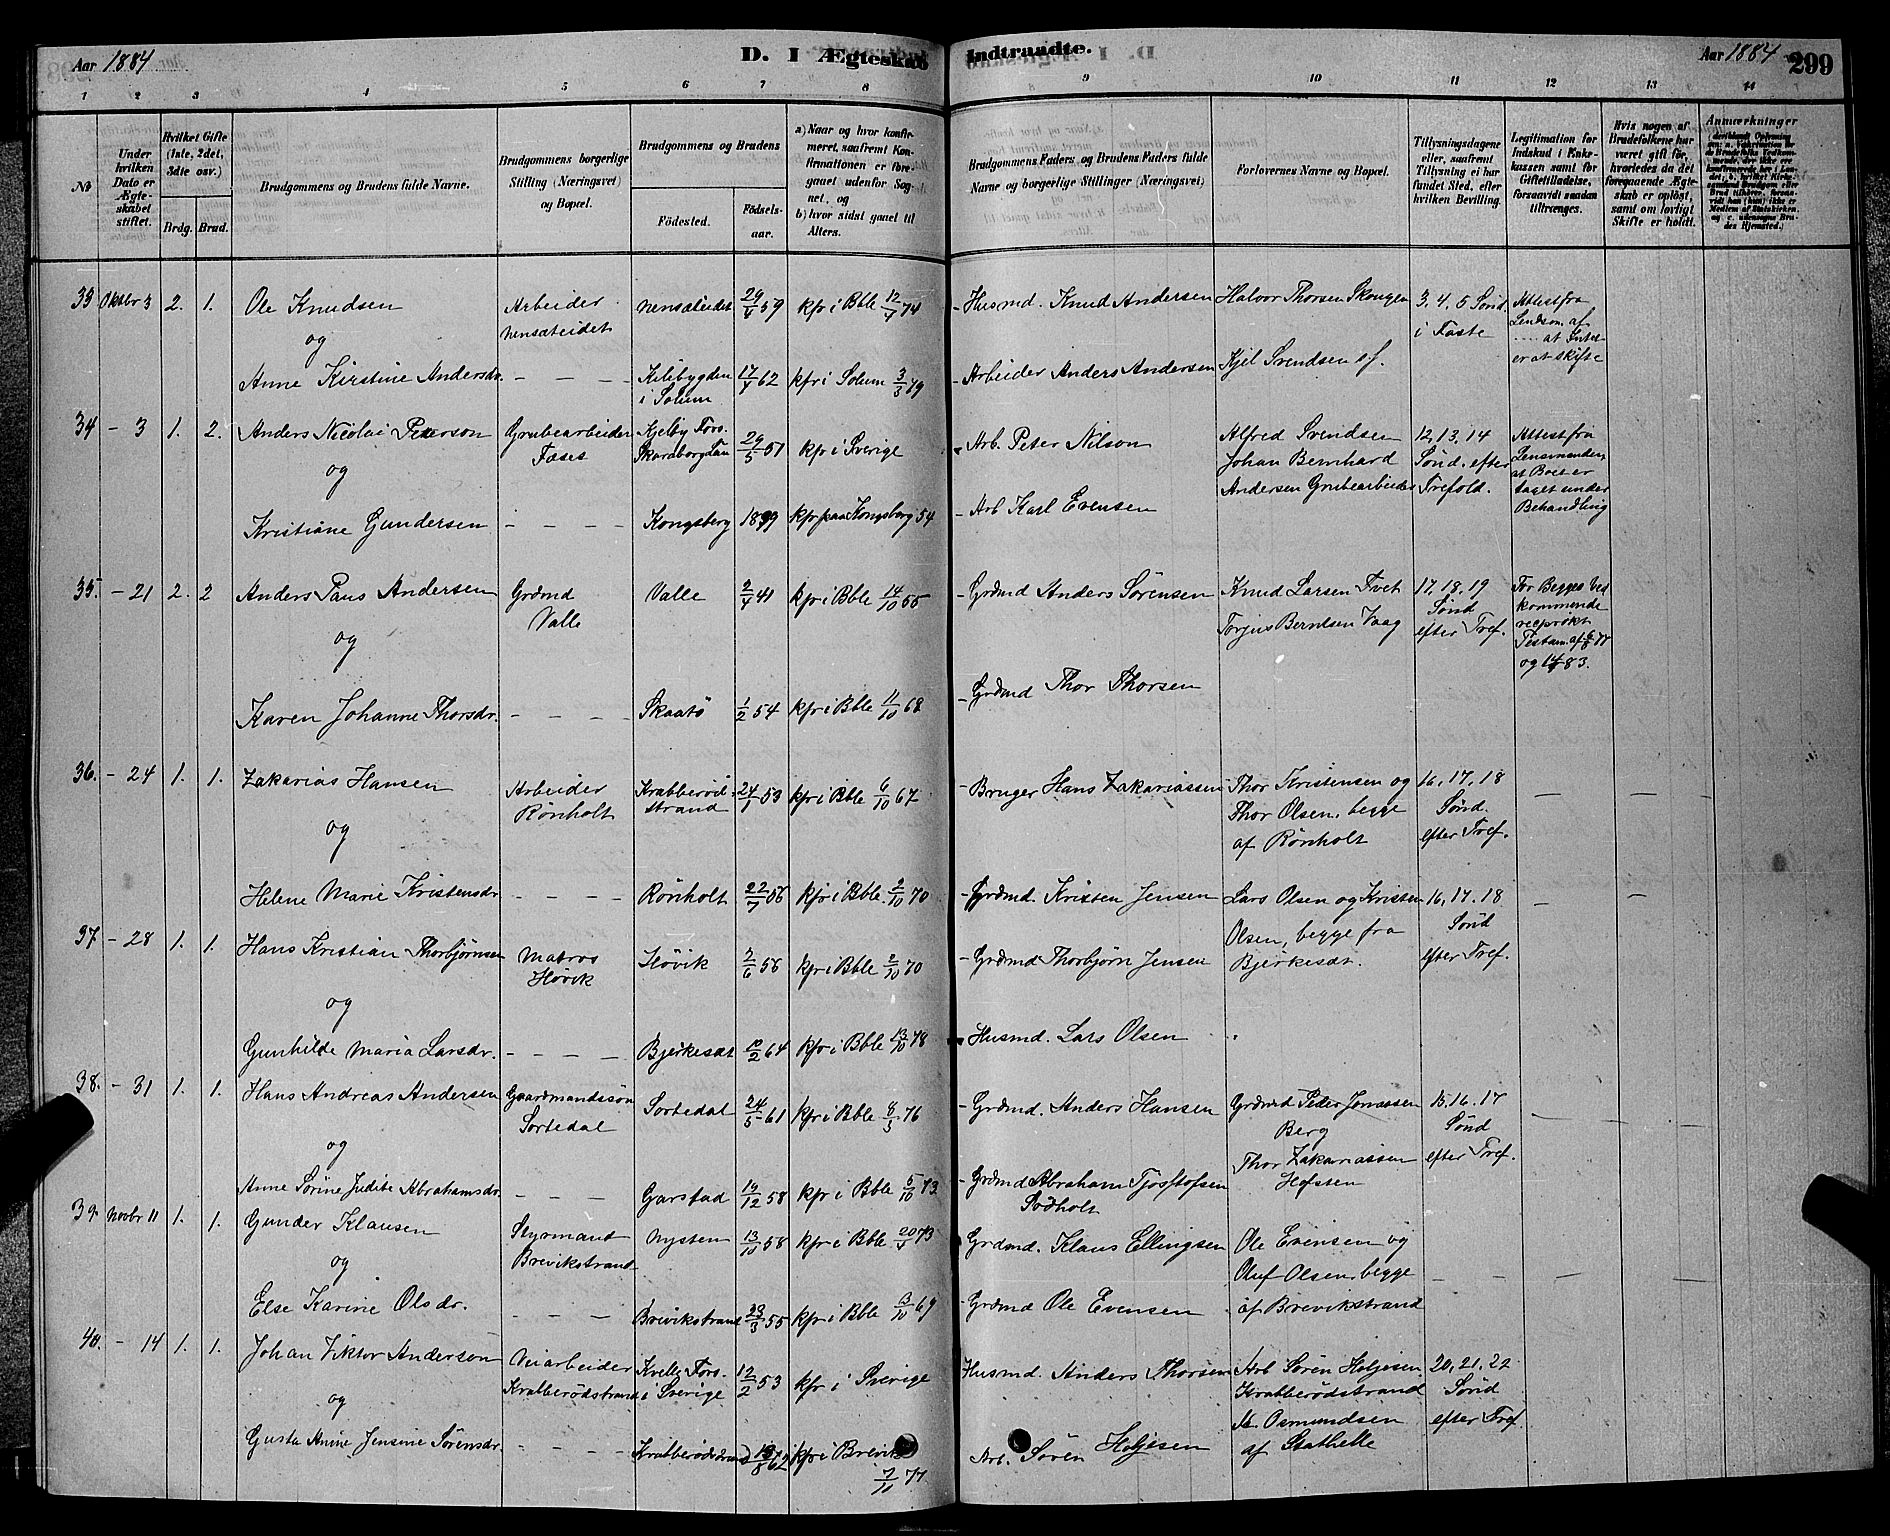 Aar 1884
D. I Ægteskab
Indtraadte.
Aar 1884
299
1 2 3 4 5 6 7 8 9 10 11 12 13 14
No
Under hvilken Dato er Ægteskabet stiftet.
Hvilket Gifte (1ste, 2det, 3die osv.)
Brdg. Brud.
Brudgommens og Brudens fulde Navne.
Brudgommens borgerlige Stilling (Næringsvei) og Bopæl.
Brudgommens og Brudens
Fødested.
Fødselsaar.
a) Naar og hvor konfirmeret, saafremt Konfirmationen er foregaaet udenfor Sognet, og
b) hvor sidst gaaet til Alters.
Brudgommens Faders og Brudens Faders fulde Navne og borgerlige Stillinger (Næringsvei)
Forlovernes Navne og Bopæl.
Tillysningsdagene eller, saafremt Tillysning ei har fundet Sted, efter hvilken Bevilling.
Legitimation for Indskud i Enkekassen samt for Giftetilladelse, forsaavidt saadan tiltrænges.
Hvis nogen af Brudefolkene har været gift før, hvorledes da det foregaaende Ægteskab er opløst, samt om lovligt Skifte er holdt.
Anmærkninger
33 Oktbr 3 2. 1. Ole Knudsen Arbeider Nensæteidet Nensæteidet 29/4 59 kfr i Bble 12/4 74 Husmd. Knud Andersen Halvor Thorsen Skougen 3. 4, 5 Sønd. i Faste Attest fra Lendsm. af at Intet er at skifte
og
Anne Kirstine Andersdr. – – – Kilebygden i Solum 17/4 62 kfr i Solum 3/3 79 Arbeider Anders Andersen Kjel Svendsen ef.
34 – 3 1. 2. Anders Nicolai Peterson Grubearbeider Kjelby Fors. Skaraborg Län 29/5 51 kfr i Sverige Arb. Peter Nilson Alfred Svendsen Johan Bernhard Andersen Grubearbeider 12, 13, 14 Sønd. efter Trefold. Attest fra Lensmanden, at Boet er taget under Behandling
og
Kristiane Gundersen – – – Kongsberg kfr paa Kongsberg 54 Arb Karl Evensen
35. – 21 2. 2 Anders Paus Andersen Grdmd Valle Valle 2/4 41 kfr i Bble 14/10 55 Grdmd Anders Sørensen Knud Larsen Tvet Torjus Berntsen Vaag 17, 18, 19 Sønd efter Tref. For Begges Vedkommende reciprokt Testam. af 77 og 83.
og
Karen Johanne Thorsdr. – – – Skaatø 1/2 54 kfr i Bble 11/10 68 Grdmd Thor Thorsen
36. – 24 1. 1. Zakarias Hansen Arbeider Rönholt Krabberødstrand 24/1 53 kfr i Bble 6/10 67 Bruger Hans Zakariassen Thor Kristensen og Thor Olsen, begge af Rönholt 16, 17, 18 Sønd. efter Tref. – – –
og
Helene Marie Kristensdr – – – Rönholt 22/7 56 kfr i Bble 2/10 70 Grdmd. Kristen Jensen
37. – 28 1. 1. Hans Kristian Thorbjørnsen Matros Høvik Høvik 2/6 56 kfr i Bble 2/10 70 Grdmd Thorbjørn Jensen Lars Olsen og Kristen Olsen, begge fra Bjerkesæt. 16, 17. 18 Sønd efter Tref. – – –
og
Gunhilde Maria Larsdr. – – – Bjerkesæt 10/2 64 kfr i Bble 13/10 78 Husmd. Lars Olsen
38. – 31 1. 1. Hans Andreas Andersen Gaardmandssøn Sortedal Sortedal 24/5 61 kfr i Bble 8/3 76 Grdmd. Anders Hansen Grdmd Peder Jonassen Berg Thor Zakariassen Hefsten 15, 16. 17 Sønd efter Tref. – – –
og
Anne Sørine Judite Abrahamsdr. – – – Garstad 19/12 58 kfr i Bble 5/10 73 Grdmd Abraham Tjostofsen Rødholt
39. Novbr 11 1. 1. Gunder Klausen Styrmand Brevikstrand Nysten 13/10 58 kfr i Bble 20/4 73 Grdmd. Klaus Ellingsen Ole Evensen og Oluf Olsen, begge af Brevikstrand – – – –
og
Else Karine Olsdr. – – – Brevikstrand 23/3 55 kfr i Bble 13/10 69 Grdmd Ole Evensen
40. – 14 1. 1. Johan Viktor Anderson Veiarbeider Krabberødstrand Kvelby Fors. i Sverige 12/2 53 kfr i Sverige Husmd. Anders Thorsen Arb Søren Holjesen Krabberødstrand Osmundsen af Stathelle 20, 21. 22 Sønd efter Tref
og
Gusta Anine Jensine Sørensdr. – – – Krabberødstrand 62 kfr i Brevik 7/11 77 Arb. Søren Holjesen